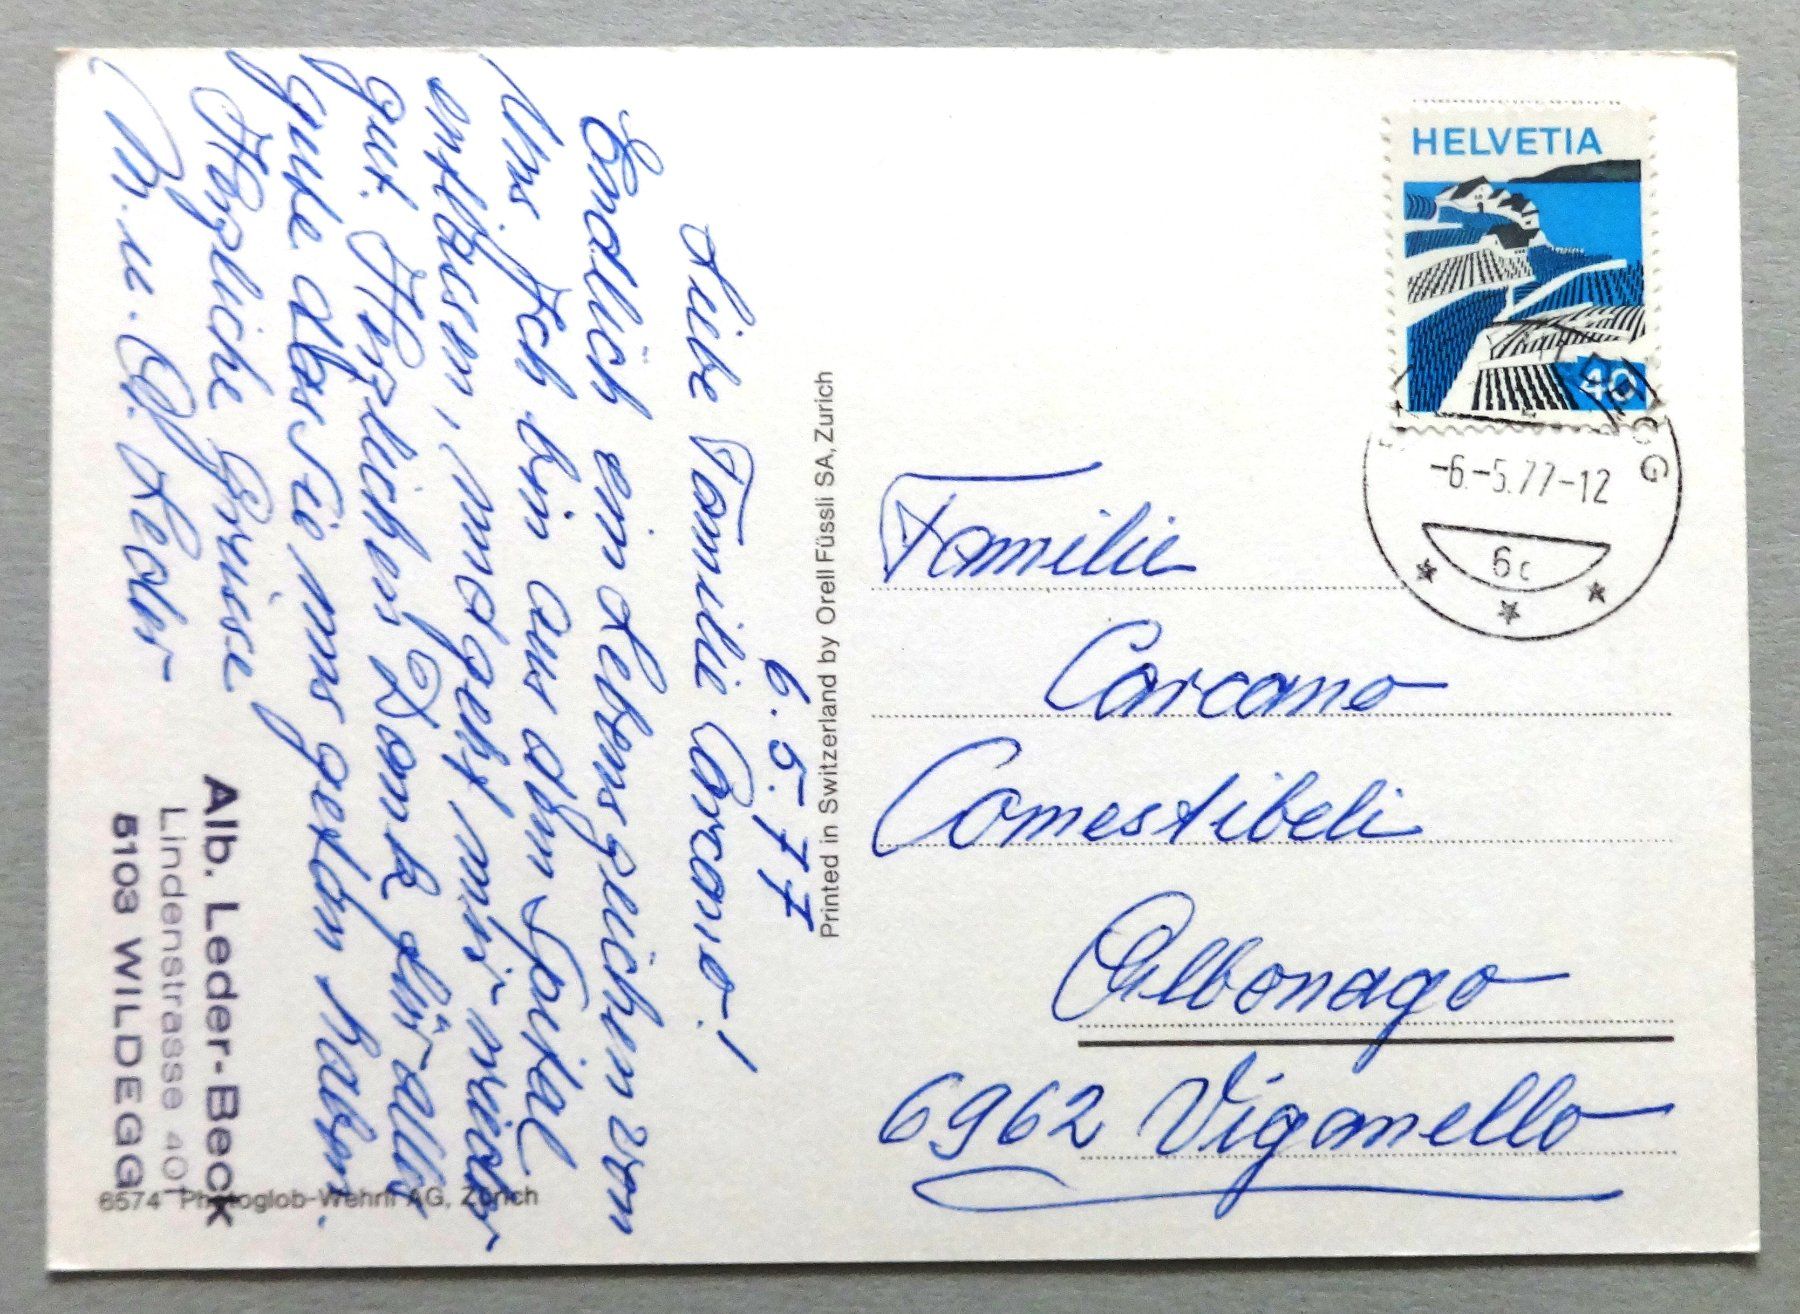 6.5.77
Liebe Familie Carcano!
Endlich ein Lebenszeichen von
uns. Ich bin aus dem Spital
entlassen, und geht mir wieder
gut. Herzlichen Dank für alles
gute das Sie uns gestern haben.
Herzliche Grüsse
M. u. A. Leder
Alb. Leder-Beck
Lindenstrasse 401
5103 WILDEGG
6574 Photoglob-Wehrli AG, Zürich
Printed in Switzerland by Orell Füssli SA, Zurich
HELVETIA
40
-6.-5.77-12
6c
Familie
Carcano
Comestibeli
Albonago
6962 Viganello